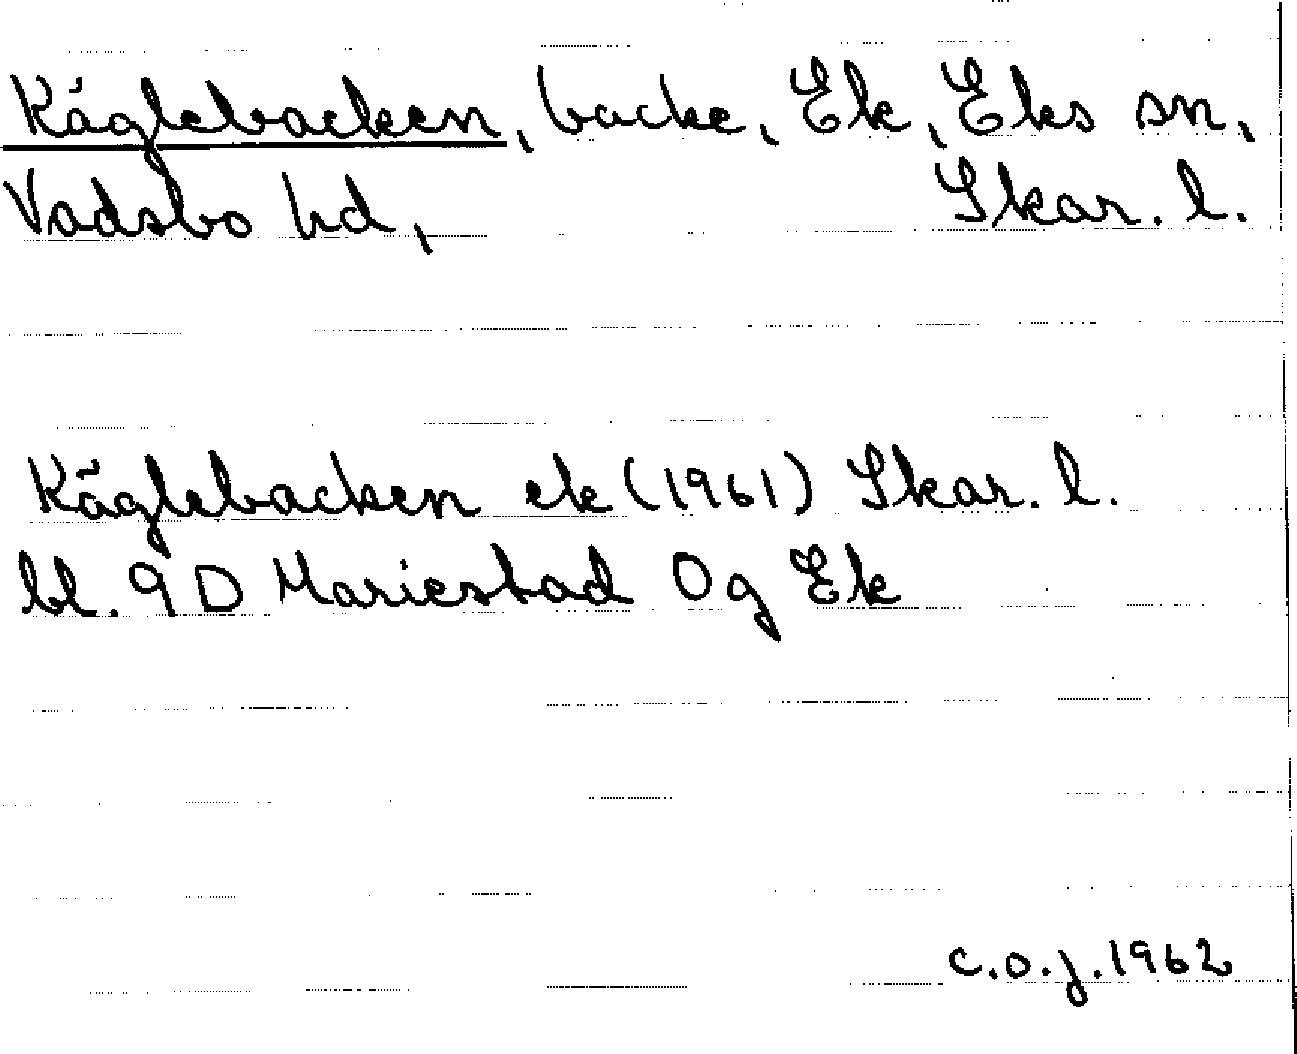 Käglebacken, backe, Ek, Eks sn,
Vadsbo hd, Skar. l.
Käglebacken ek (1961) Skar. l.
bl. 9D Mariestad 0g Ek
C.O.J. 1962